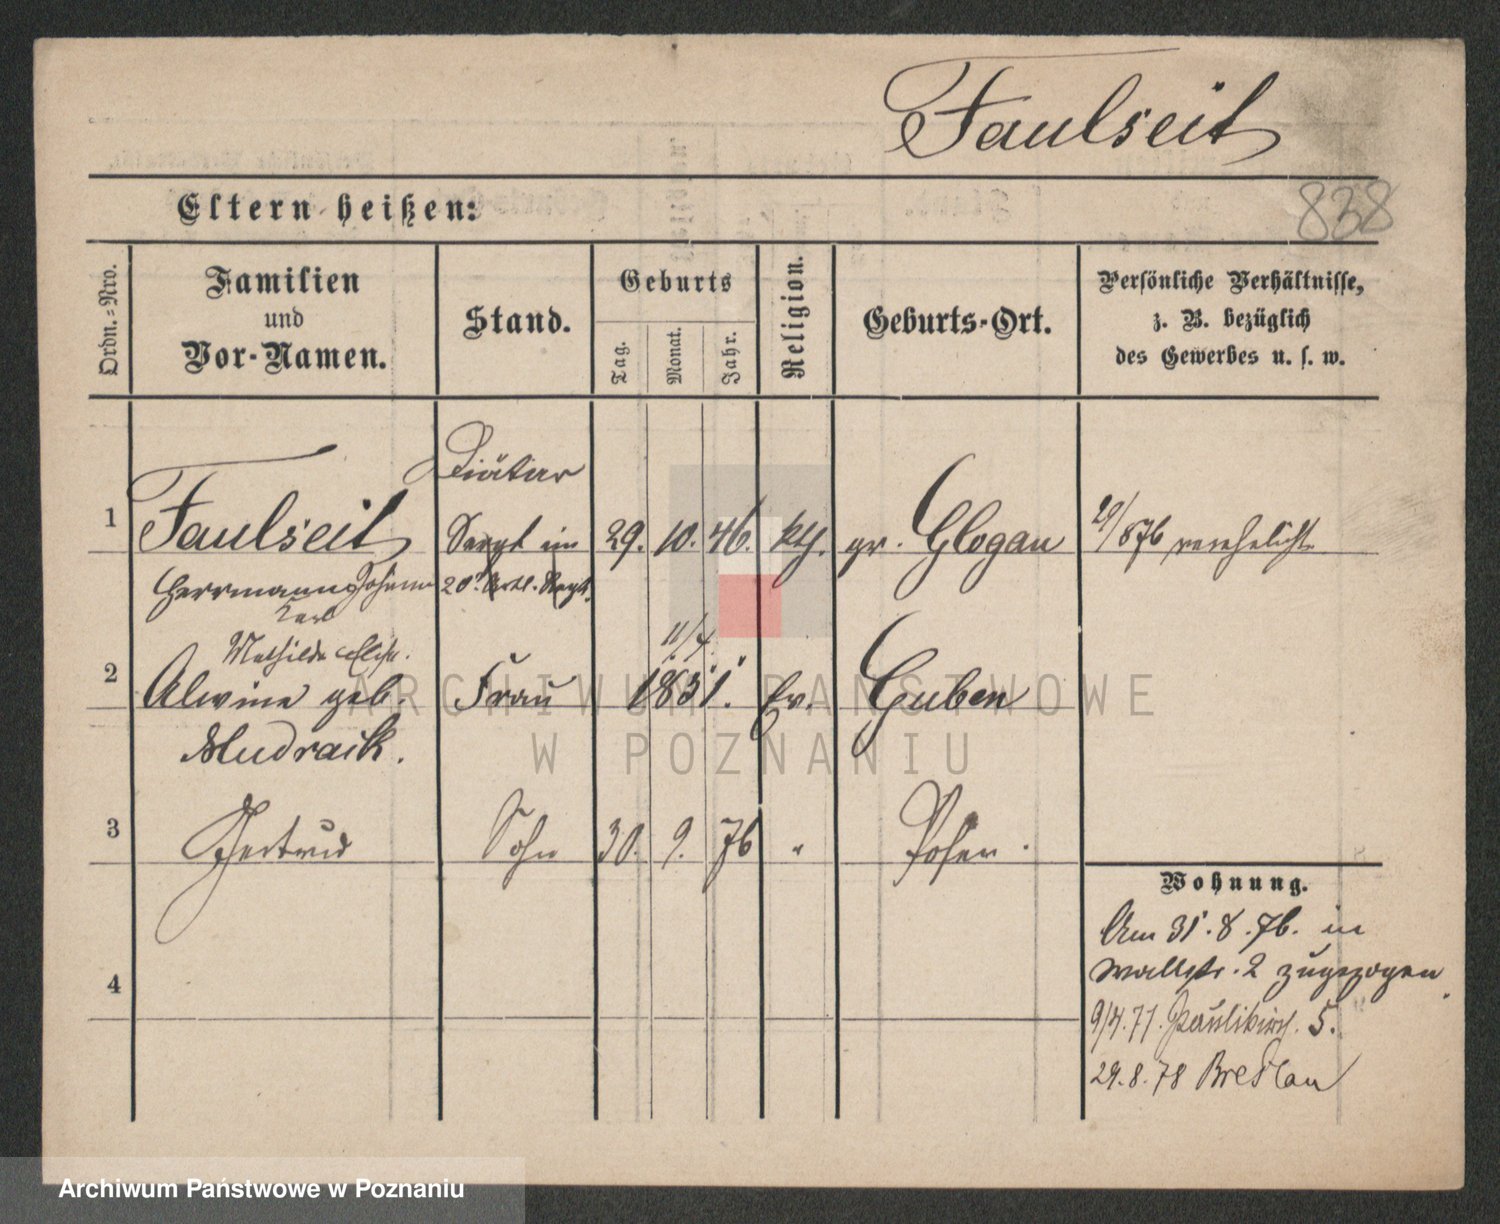 Faulseit
838
Eltern heißen:
Ordn.-Nro.
Familien
und
Vor-Namen.
Stand.
Geburts
Tag.
Monat.
Jahr.
Religion.
Geburts-Ort.
Persönliche Verhältnisse,
z. B. bezüglich
des Gewerbes u. s. w.
Diätar
1 Faulseit Sergt im 29. 10. 46. kth. gr. Glogau 29/876 verehelicht
Herrmann Johann 20. Artl. Regt.
Karl
11/4
Mathilde Elise.
2 Alwine geb. Frau 1851. Ev. Guben
Mudrack.
3 Gertrud Sohn 30. 9. 76 " Posen.
Wohnung.
Am 31.8.76. in
Wallstr. 2 zugezogen.
9/4.77. Paulikirch. 5.
4
29.8.78 Breslau
ARCHIWUM PAŃSTWOWE
W POZNANIU
Archiwum Państwowe w Poznaniu